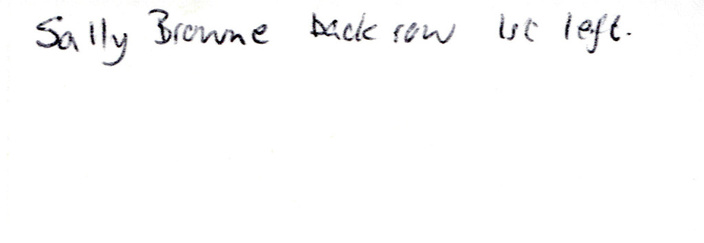 Sally Browne back row 1st left.